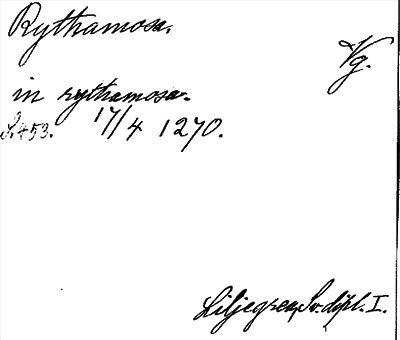 Rythamosa.
Vg.
in rythamosa.
S. 453. 17/4 1270.
Liljegren, Sv. dipl. I.